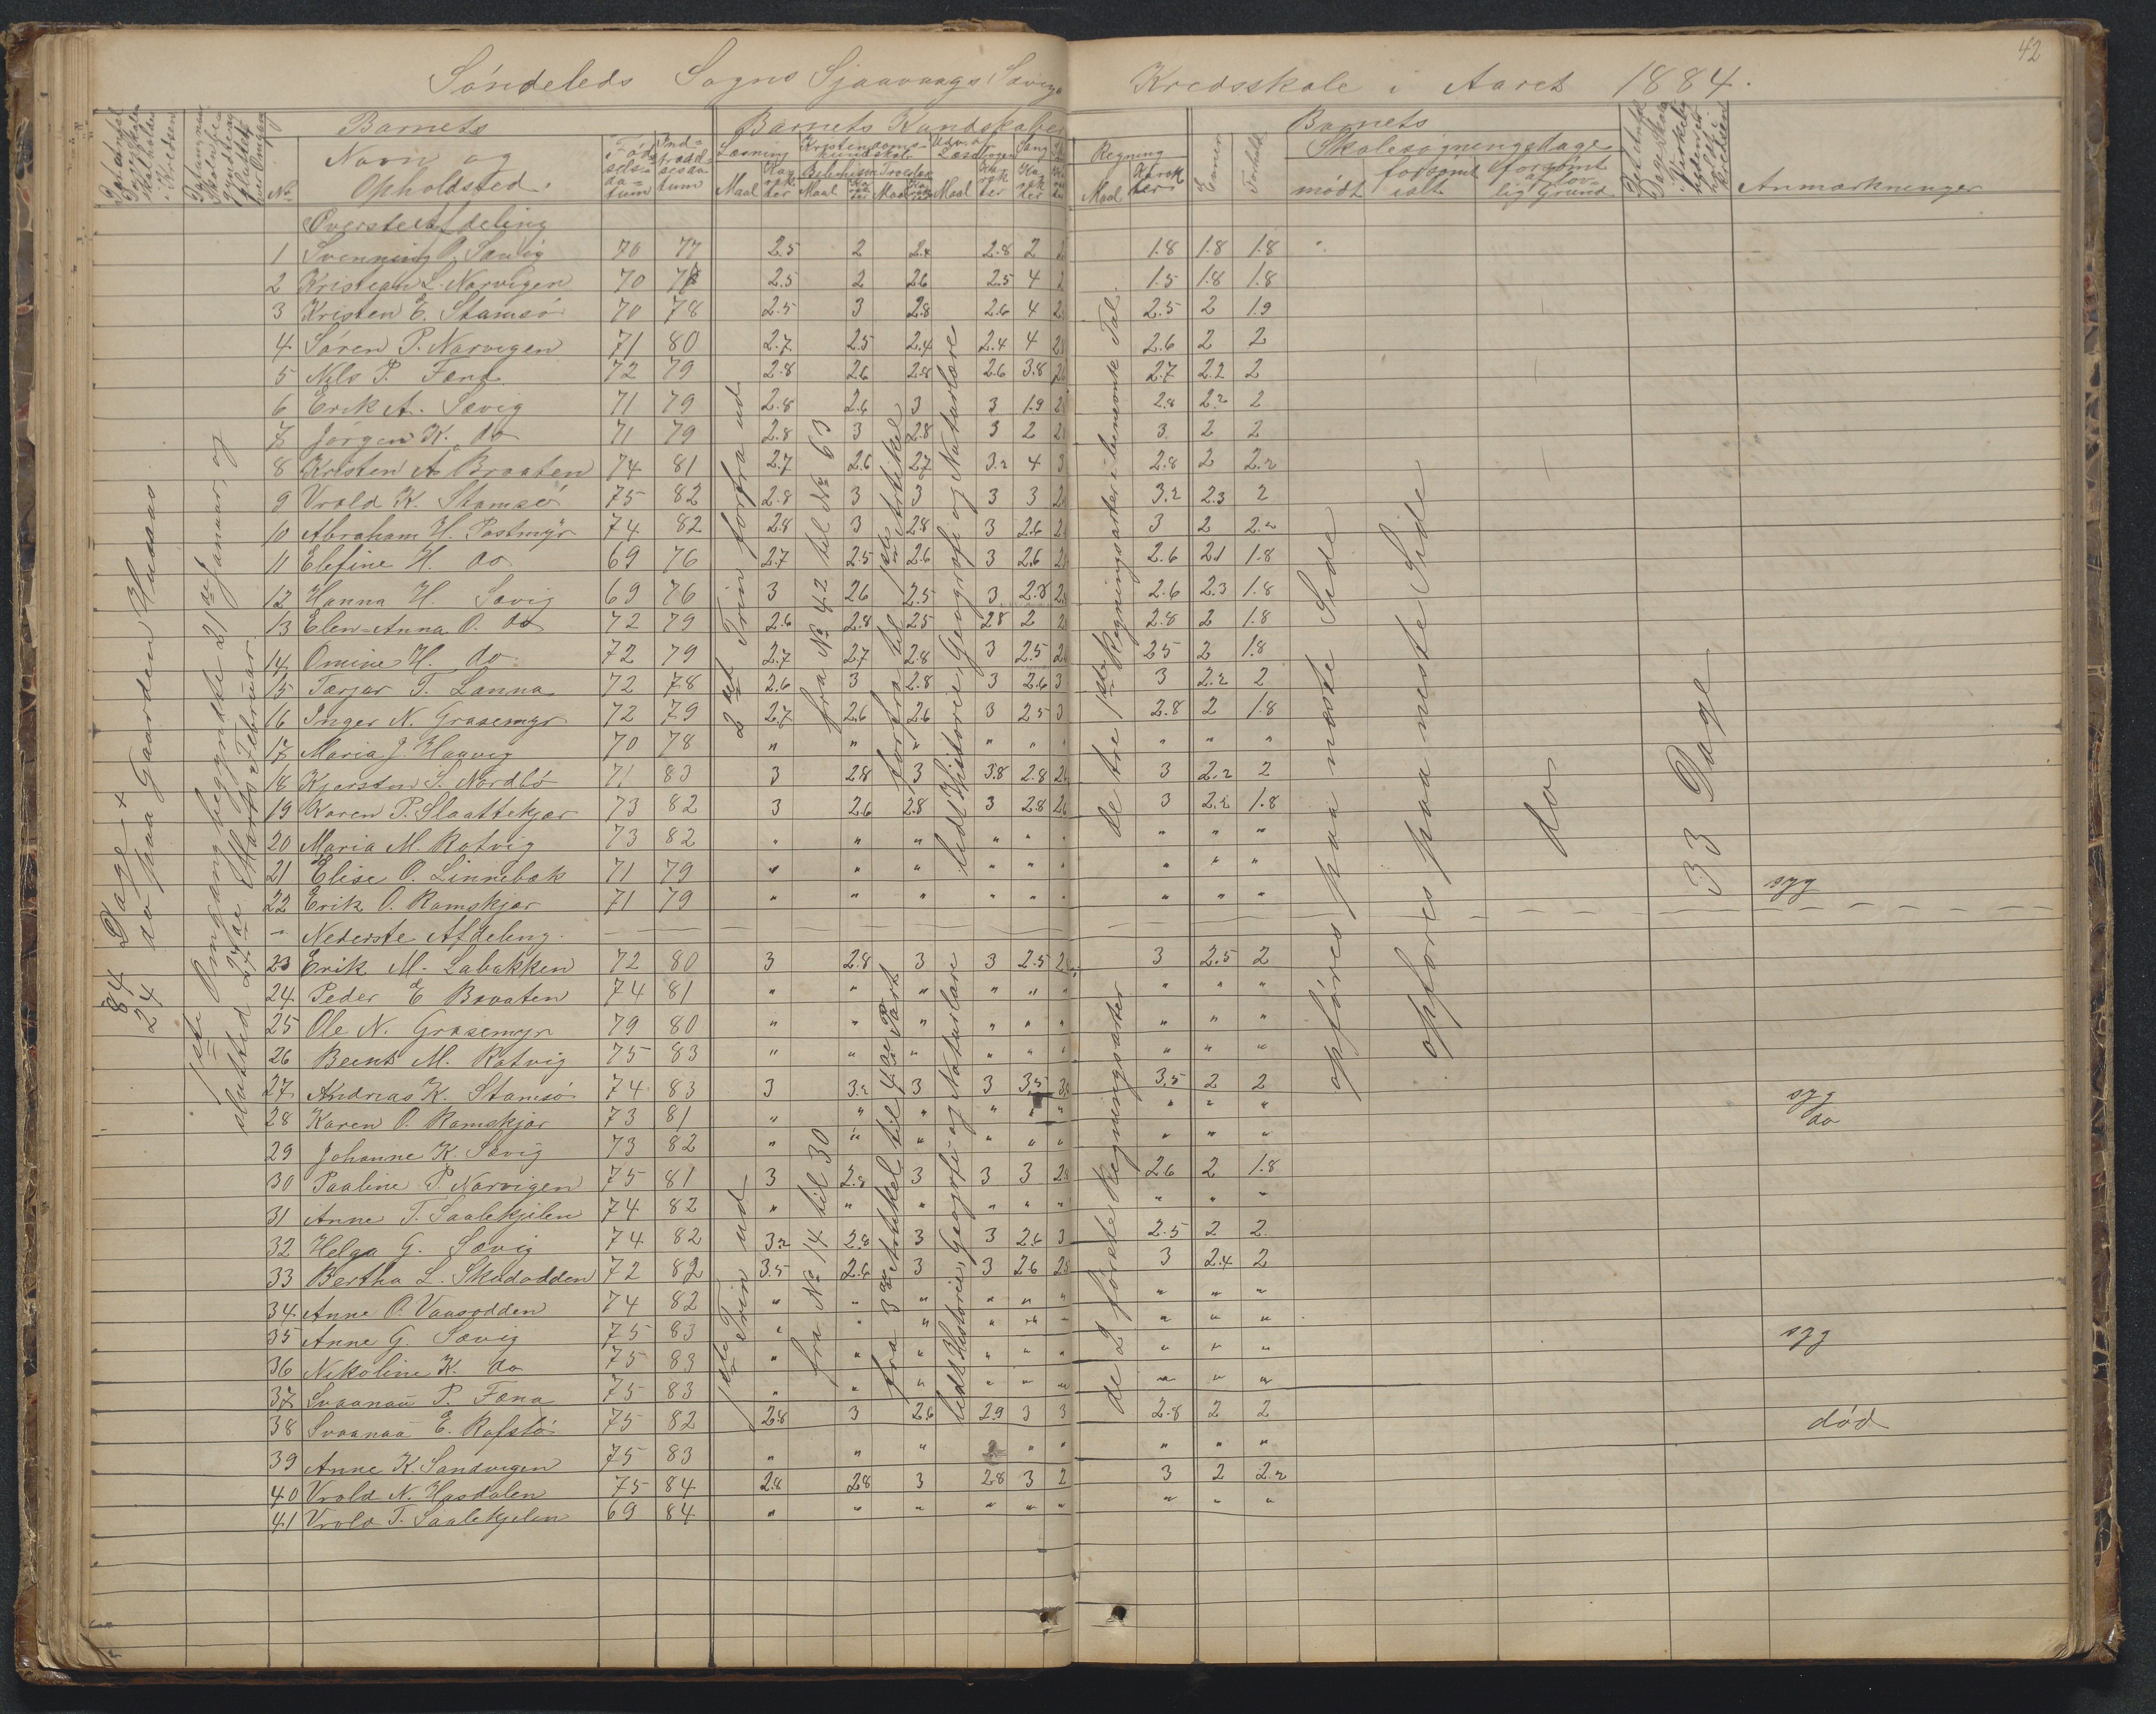 42
Söndeleds Sogns Sjaavaags Sævigs Kredsskole i Aaret 1884.
Barnets
Barnets Kundskaber
Barnets
No
Navn og Opholdsted.
Födselsdatum
Indtrædelsesdatum
Læsning
Kristendomskundskab
Udv. af Læsebogen
Sang
Regning
Evner
Forhold
Skolesøgningsdage
Anmærkninger
Maal
Karakter
mødt
forsømt ialt
forsømt af lovlig Grund
Øverste Afdeling
1 Svenning O. Sævig 70 77 2.5 2 2.4 2.8 2 1.8 1.8 1.8
2 Kristian L. Narvigen 70 78 2.5 2 26 2.5 4 1.5 1.8 1.8
3 Kristen E. Stamsö 70 78 2.5 3 2.8 2.6 4 2.5 2 1.9
4 Søren P. Narvigen 71 80 2.7 2.5 2.4 2.4 4 2.6 2 2
5 Nils P. Fænə 72 79 2.8 26 2.8 26 3.8 2.7 2.2 2
6 Erik A. Sævig 71 79 2.8 2.6 3 3 1.9 2.8 2.2 2
7 Jörgen K. do 71 79 2.8 3 2.8 3 2 3 2 2
8 Kristen A. Braaten 74 81 2.7 26 27 3.2 4 3 2.8 2 2.2
9 Vrold K. Stamsö 75 82 2.8 3 3 3 3 3.2 2.3 2
10 Abraham H. Postmyr 74 82 2.8 3 28 3 2.6 3 2 2.2
11 Elefine H. do 69 76 2.7 2.5 2.6 3 2.6 2.6 2.1 1.8
12 Hanna H. Sævig 69 76 3 26 2.5 3 2.8 2.6 2.3 1.8
13 Elen-Anna O. do 72 79 2.6 2.8 25 28 2 2.8 2 1.8
14 Omine H. do 72 79 2.7 2.7 2.8 3 2.5 25 2 1.8
15 Tarjer T. Lanna 72 78 2.6 3 2.8 3 2.6 3 3 2.2 2
16 Inger N. Grasemyr 72 79 2.7 2.6 26 3 25 3 2.8 2 1.8
17 Maria J. Haavig 70 78 " " " " " " " "
18 Kjersten S. Nordbö 71 83 3 28 3 3.8 2.8 3 2.2 2
19 Karen P. Slaattekjær 73 82 3 2.6 2.8 3 28 3 2.2 1.8
20 Maria M. Rotvig 73 82 " " " " " " " "
21 Elise O. Linnebæk 71 79 " " " " " " " "
22 Erik O. Ramskjær 71 79 " " " " " " " " syg
Nederste Afdeling.
23 Erik M. Labakken 72 80 3 2.8 3 3 2.5 3 2.5 2
24 Peder E Braaten 74 81 " " " " " " " "
25 Ole N. Grasemyr 79 80 " " " " " " " "
26 Bernt M. Rotvig 75 83 " " " " " " " "
27 Andreas K. Stamsö 74 83 3 3.2 3 3 3.5 3.5 2 2
28 Karen O. Ramskjær 73 81 " " " " " " " " syg
29 Johanne K. Sævig 73 82 " " " " " " " " do
30 Paaline P. Narvigen 75 81 3 2.8 3 3 3 2.6 2 1.8
31 Anne T. Saalekjelen 74 82 " " " " " " " "
32 Helga G. Sævig 74 82 3.2 2.8 3 3 2.6 3 2.5 2 2
33 Bertha L. Skudodden 72 82 3.5 2.6 3 3 26 3 2.4 2
34 Anne O. Vaasodden 74 82 " " " " " " " "
35 Anne G. Sævig 75 83 " " " " " " " "
36 Nikoline K. do 75 83 " " " " " " " " syg
37 Svaanau P. Fæna 75 83 " " " " " " " "
38 Svaanaa E. Rofstö 75 82 2.8 3 2.6 2.9 3 3 2.8 2 2
39 Anne K. Sandvigen 75 83 " " " " " " " død
40 Vrold N. Hasdalen 75 84 2.8 28 3 2.8 3 2 3 2 2.2
41 Vrold T. Saalekjelen 69 84 " " " " " " " "
84 Dage +
24 do paa Gaarden
1ste Omgang begyndte 21de Januar, og
slutted 27de
2det Trin forfra ud
fra No 42 til No 63
forfra til 1ste Artikel
lidt Historie, Geografi og Naturlære
de tre 1ste Regningsarter i benævnte Tal.
opføres paa næste Side
opføres paa næste Side
do
33 Dage
1ste Trin ud
fra No 14 til 30
fra 3de Artikel til 4de Part
lidt Historie, Geografi og Naturlære
de 2 første Regningsarter